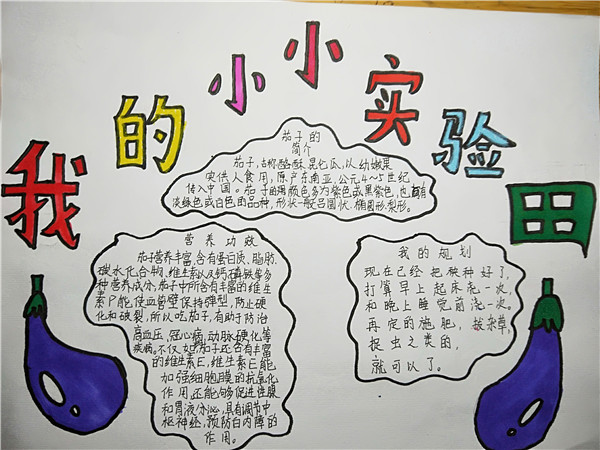 我的小小实验田
茄子的
简介
茄子,古称酪酥、昆仑瓜,以幼嫩果
实供人食用,原产东南亚,公元4～5世纪
传入中国。茄子的颜色多为紫色或黑紫色,也有
淡绿色或白色的品种,形状一般呈圆状.椭圆形.梨形。
营养功效
茄子营养丰富,含有蛋白质、脂肪、
碳水化合物、维生素以及钙磷铁等多
种营养成分,茄子中所含有丰富的维生
素P能使血管壁保持弹型,防止硬
化和破裂,所以吃茄子,有助于防治
高血压,冠心病,动脉硬化等
疾病。不仅如茄子还含有丰富
的维生素E,维生素E能
加强细胞膜的抗氧化
作用,还能够促进性腺
和胃液分泌,具有调节中
枢神经,预防白内障的
作用。
我的规划
现在已经把秧种好了,
打算早上起床浇一次,
和晚上睡觉前浇一次。
再定的施肥,拔杂草,
捉虫之类的,
就可以了。